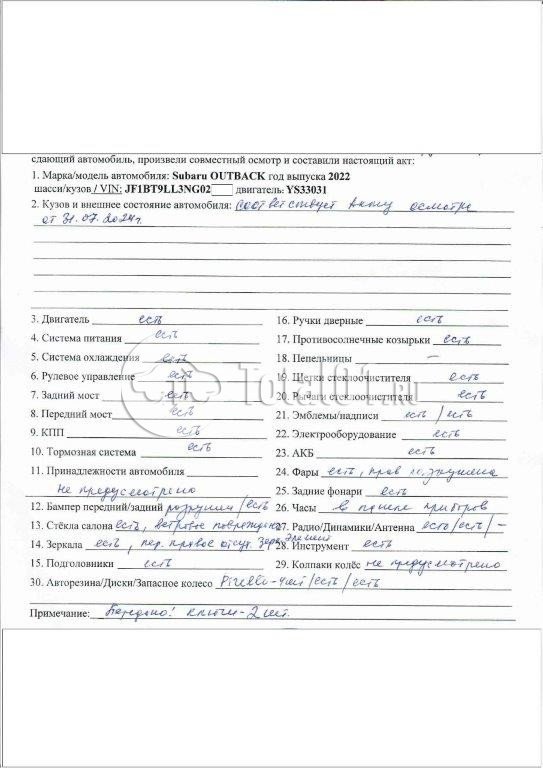 сдающий автомобиль, произвели совместный осмотр и составили настоящий акт:
1. Марка/модель автомобиля: Subaru OUTBACK год выпуска 2022
шасси/кузов / VIN: JF1BT9LL3NG02 двигатель: YS33031
2. Кузов и внешнее состояние автомобиля: соответствует Акту осмотра
от 31.07.2024г.
3. Двигатель есть
4. Система питания есть
5. Система охлаждения есть
6. Рулевое управление есть
7. Задний мост есть
8. Передний мост есть
9. КПП есть
10. Тормозная система есть
11. Принадлежности автомобиля
не предусмотрено
12. Бампер передний/задний разрушен/есть
13. Стёкла салона есть, ветровое повреждено
14. Зеркала есть, пер. правое отсут. зерк. элемент
15. Подголовники есть
16. Ручки дверные есть
17. Противосолнечные козырьки есть
18. Пепельницы –
19. Щетки стеклоочистителя есть
20. Рычаги стеклоочистителя есть
21. Эмблемы/надписи есть / есть
22. Электрооборудование есть
23. АКБ есть
24. Фары есть, прав
25. Задние фонари есть
26. Часы в панеле приборов
27. Радио/Динамики/Антенна есть/есть/–
28. Инструмент есть
29. Колпаки колёс не предусмотрено
30. Авторезина/Диски/Запасное колесо Pirelli-4шт/есть/есть
Примечание: Передано! ключи-2шт.
Total01.ru